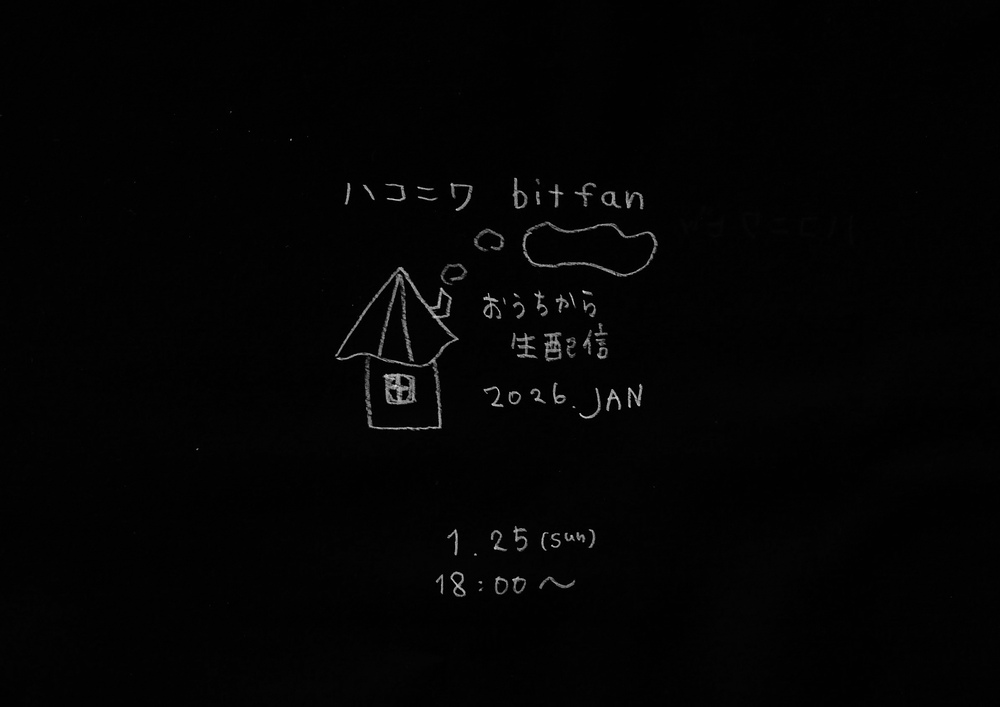 ハコニワ bitfan
おうちから
生配信
2026.JAN
1.25(sun)
18:00〜